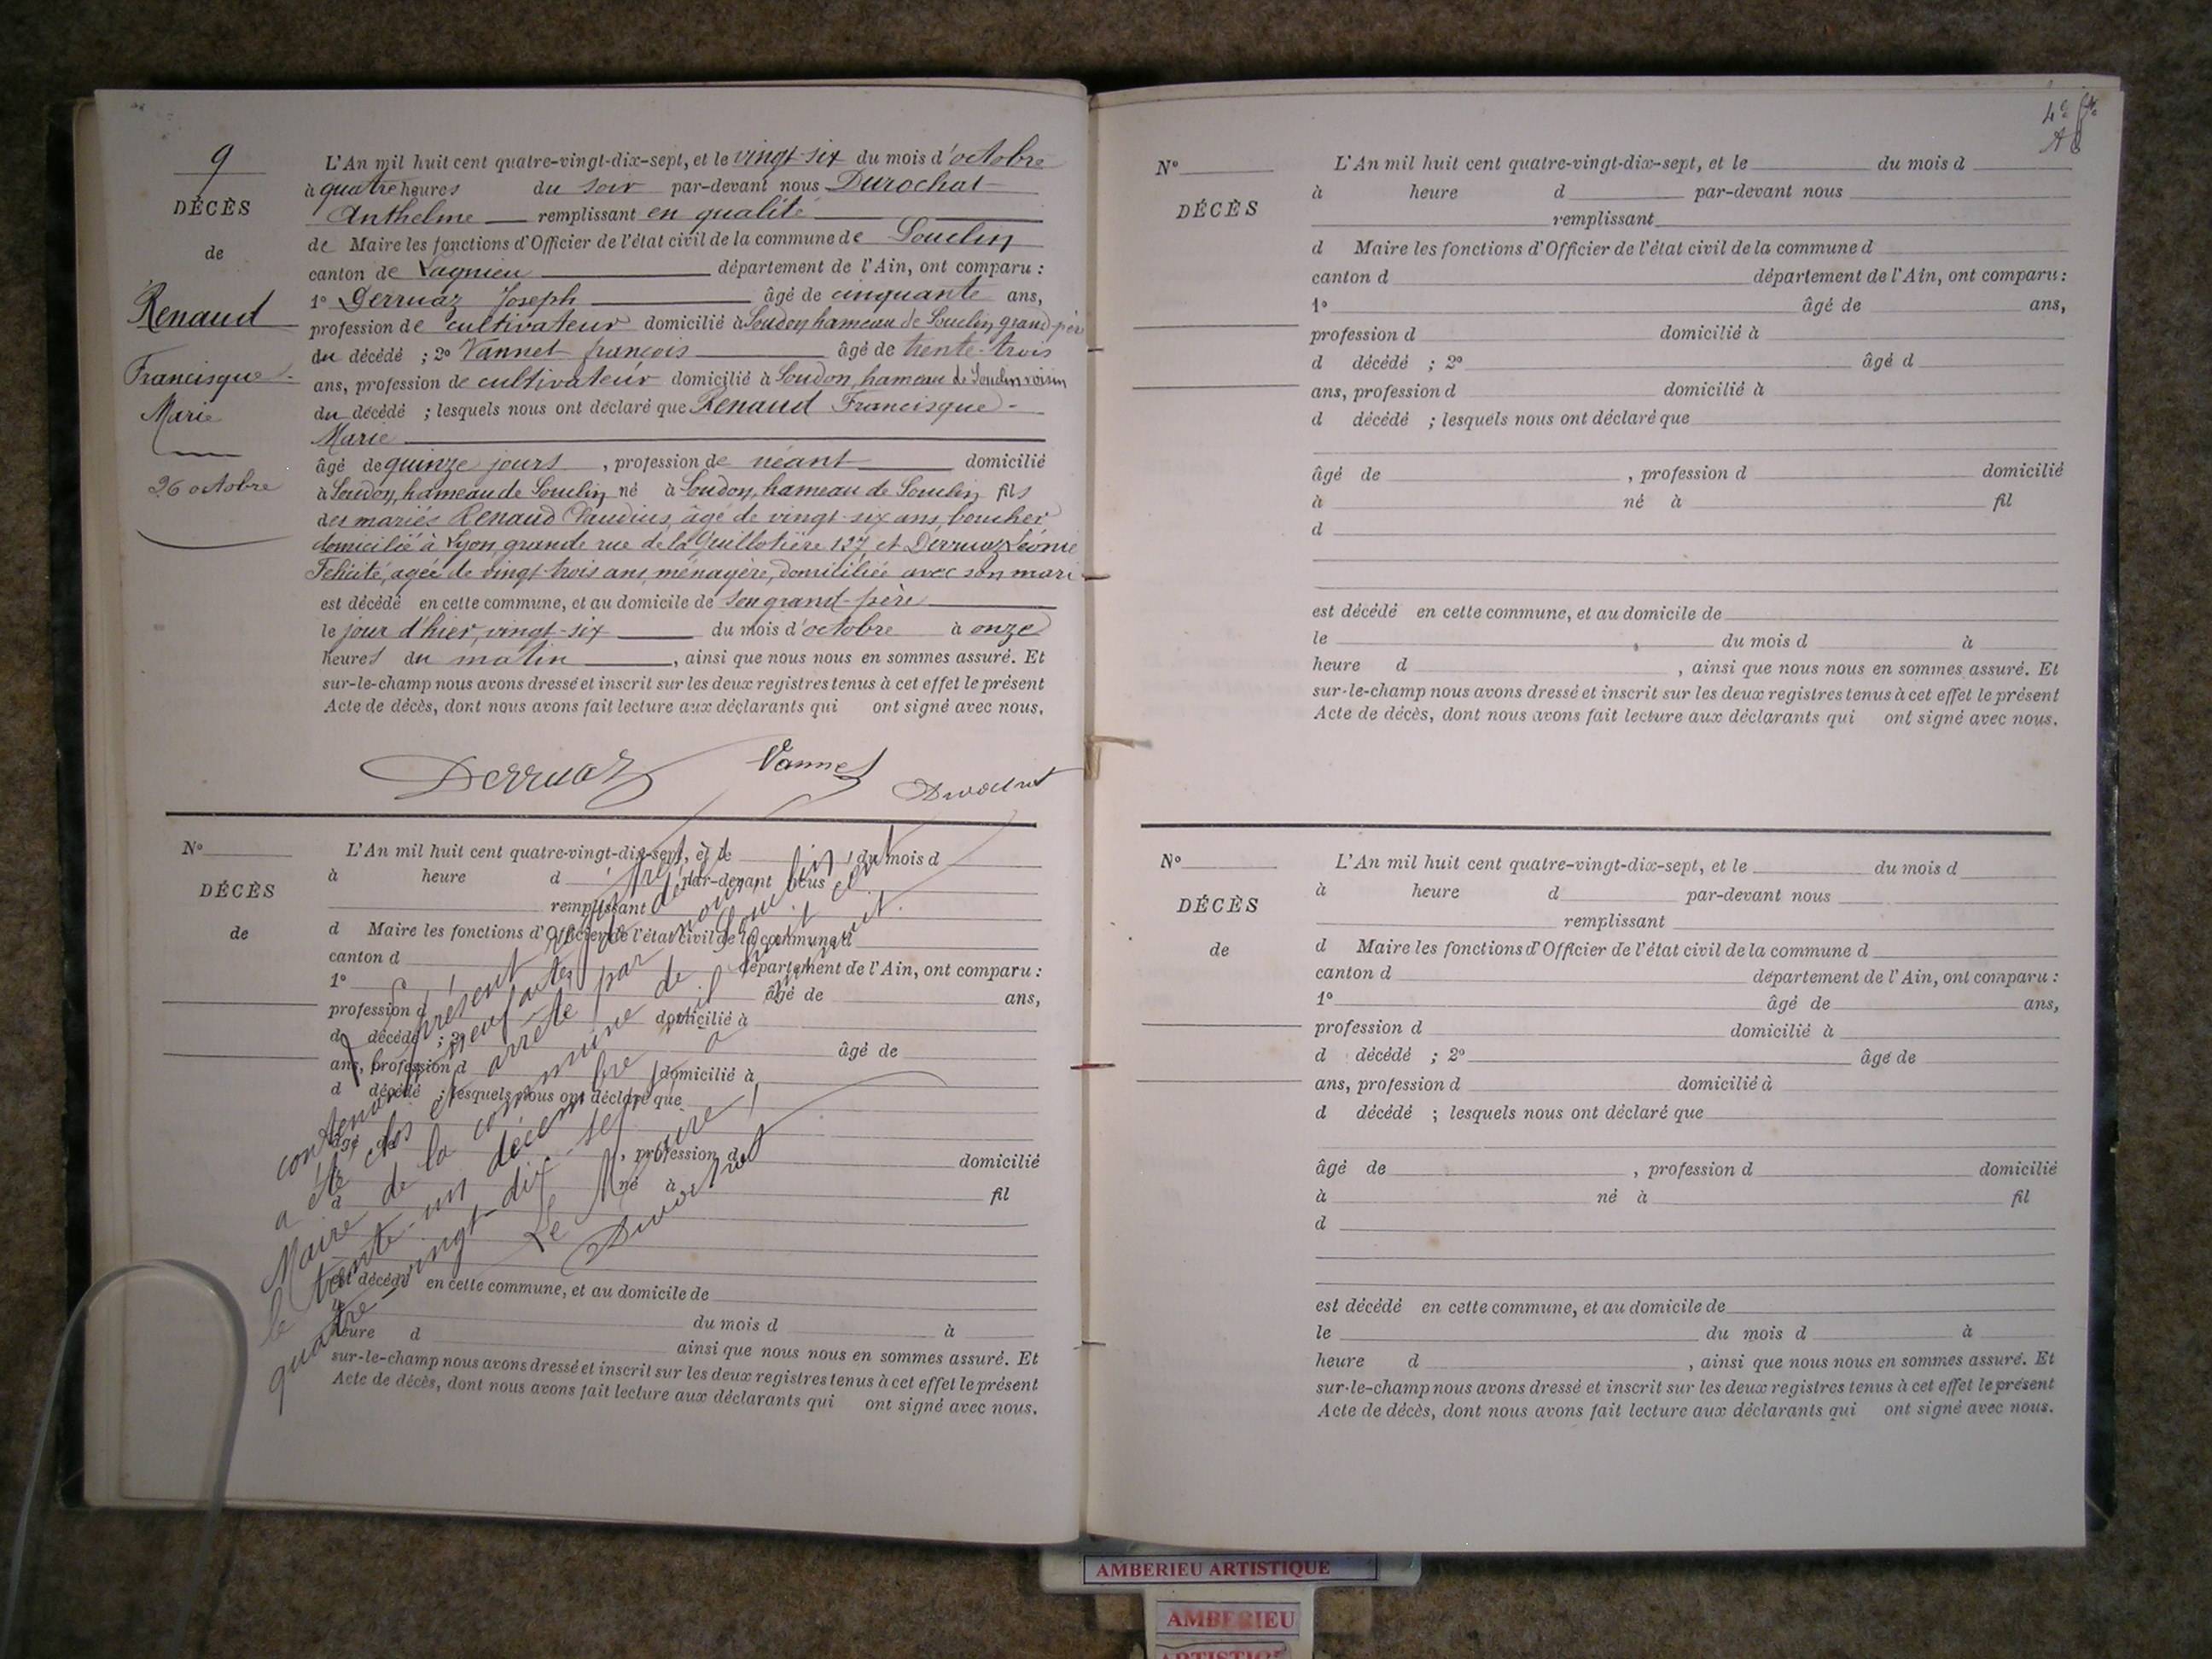 9
DÉCÈS
de
Renaud
Francisque
Marie
26 octobre
L'An mil huit cent quatre-vingt-dix-sept, et le vingt-six du mois d'octobre
à quatre heures du soir par-devant nous Durochat
Anthelme remplissant en qualité
de Maire les fonctions d'Officier de l'état civil de la commune de Souclin
canton de Lagnieu département de l'Ain, ont comparu :
1º Derruaz Joseph âgé de cinquante ans,
profession de cultivateur domicilié à Soudon, hameau de Souclin, grand-père
du décédé ; 2º Vannet françois âgé de trente-trois
ans, profession de cultivateur domicilié à Soudon, hameau de Souclin voisin
du décédé ; lesquels nous ont déclaré que Renaud Francisque-
Marie
âgé de quinze jours , profession de néant domicilié
à Soudon, hameau de Souclin né à Soudon, hameau de Souclin fils
des mariés Renaud Claudius, âgé de vingt-six ans, boucher
domicilié à Lyon, grande rue de la Guillotière 137 et Derruaz Léonie
Félicité, agée de vingt-trois ans, ménagère, domiciliée avec son mari
est décédé en cette commune, et au domicile de son grand-père
le jour d'hier, vingt-six du mois d'octobre à onze
heures du matin , ainsi que nous nous en sommes assuré. Et
sur-le-champ nous avons dressé et inscrit sur les deux registres tenus à cet effet le présent
Acte de décès, dont nous avons fait lecture aux déclarants qui ont signé avec nous.
Derruaz Vannet Durochat
Nº
DÉCÈS
de
L'An mil huit cent quatre-vingt-dix-sept, et le du mois d
à heure d par-devant nous
remplissant
d Maire les fonctions d'Officier de l'état civil de la commune d
canton d département de l'Ain, ont comparu :
1º âgé de ans,
profession d domicilié à
d décédé ; 2º âgé de
ans, profession d domicilié à
d décédé ; lesquels nous ont déclaré que
âgé de , profession d domicilié
à né à fil
d
est décédé en cette commune, et au domicile de
le du mois d à
heure d ainsi que nous nous en sommes assuré. Et
sur-le-champ nous avons dressé et inscrit sur les deux registres tenus à cet effet le présent
Acte de décès, dont nous avons fait lecture aux déclarants qui ont signé avec nous.
présent
contenant neuf actes de
a été clos et arrêté par nous
Maire de la commune de Souclin
le trente-un décembre mil huit cent
quatre-vingt-dix-sept
Le Maire,
Durochat
Nº
DÉCÈS
L'An mil huit cent quatre-vingt-dix-sept, et le du mois d
à heure d par-devant nous
remplissant
d Maire les fonctions d'Officier de l'état civil de la commune d
canton d département de l'Ain, ont comparu :
1º âgé de ans,
profession d domicilié à
d décédé ; 2º âgé d
ans, profession d domicilié à
d décédé ; lesquels nous ont déclaré que
âgé de , profession d domicilié
à né à fil
d
est décédé en cette commune, et au domicile de
le du mois d à
heure d , ainsi que nous nous en sommes assuré. Et
sur-le-champ nous avons dressé et inscrit sur les deux registres tenus à cet effet le présent
Acte de décès, dont nous avons fait lecture aux déclarants qui ont signé avec nous.
Nº
DÉCÈS
de
L'An mil huit cent quatre-vingt-dix-sept, et le du mois d
à heure d par-devant nous
remplissant
d Maire les fonctions d'Officier de l'état civil de la commune d
canton d département de l'Ain, ont comparu :
1º âgé de ans,
profession d domicilié à
d décédé ; 2º âgé de
ans, profession d domicilié à
d décédé ; lesquels nous ont déclaré que
âgé de , profession d domicilié
à né à fil
d
est décédé en cette commune, et au domicile de
le du mois d à
heure d , ainsi que nous nous en sommes assuré. Et
sur-le-champ nous avons dressé et inscrit sur les deux registres tenus à cet effet le présent
Acte de décès, dont nous avons fait lecture aux déclarants qui ont signé avec nous.
AMBERIEU ARTISTIQUE
AMBERIEU
ARTISTIQUE